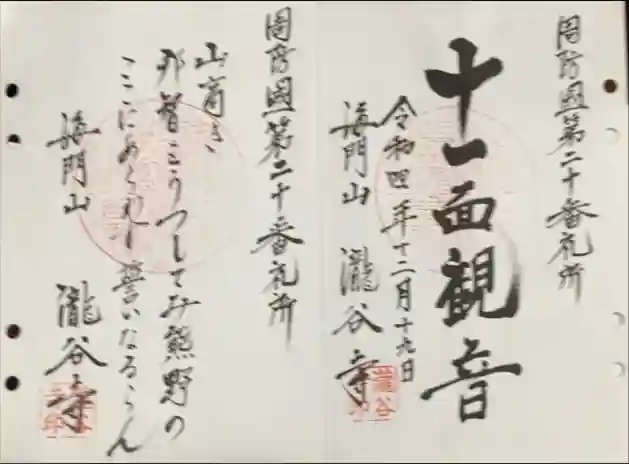 周防國第二十番札所
十一面観音
令和四年十二月十九日
海門山 瀧谷寺
周防國第二十番札所
山高き
那智をうつしてみ熊野の
ここにあくれし誓いなるらん
海門山 瀧谷寺